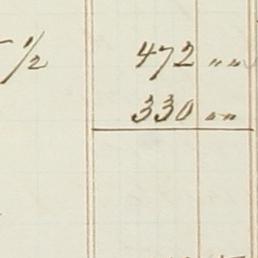 1/2 472 " "
330 " "